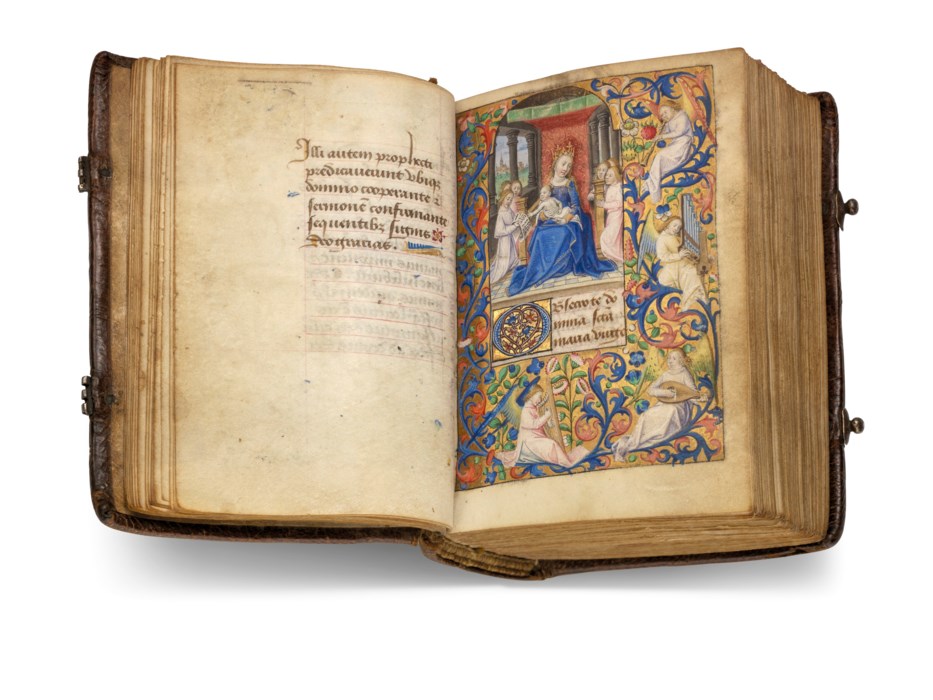 Illi autem profecti
predicauerunt vbiq₃
domino cooperante ⁊
sermonē confirmante
sequentibꝫ signis
Deo gracias.
Obsecro te do
mina scā
maria mate